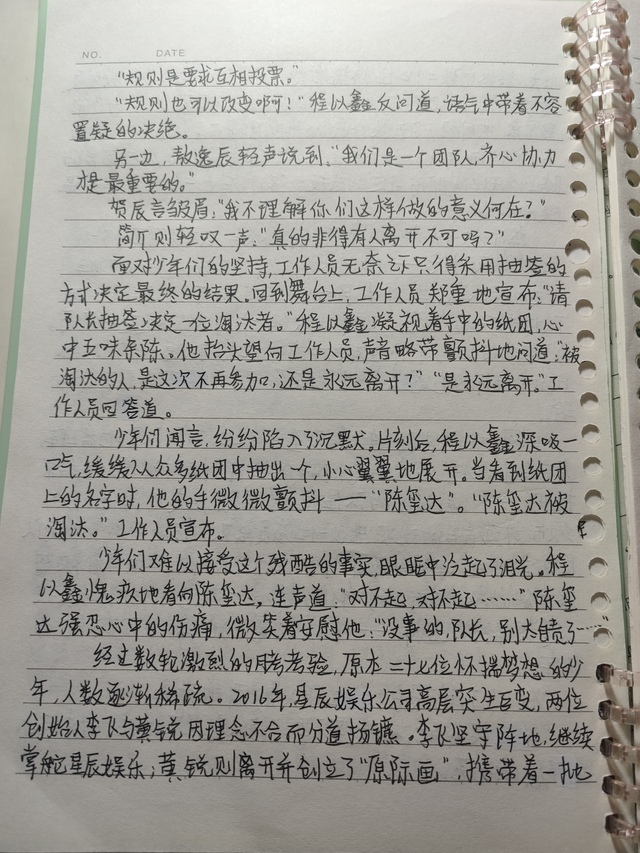 NO.
DATE
“规则是要求互相投票。”
“规则也可以改变啊！”程以鑫反问道，语气中带着不容
置疑的决绝。
另一边，敖逸辰轻声说到，“我们是一个团队，齐心协力
才是最重要的。”
贺辰言皱眉：“我不理解你们这样做的意义何在？”
简亓则轻叹一声：“真的非得有人离开不可吗？”
面对少年们的坚持，工作人员无奈之下只得采用抽签的
方式决定最终的结果。回到舞台上，工作人员郑重地宣布：“请
队长抽签决定一位淘汰者。”程以鑫凝视着手中的纸团，心
中五味杂陈。他抬头望向工作人员，声音略带颤抖地问道：“被
淘汰的人，是这次不再参加，还是永远离开？”“是永远离开。”工
作人员回答道。
少年们闻言，纷纷陷入了沉默。片刻后，程以鑫深吸一
口气，缓缓从众多纸团中抽出一个，小心翼翼地展开。当看到纸团
上的名字时，他的手微微颤抖——“陈玺达”。“陈玺达被
淘汰。”工作人员宣布。
少年们难以接受这个残酷的事实，眼眶中泛起了泪光。程
以鑫愧疚地看向陈玺达，连声道：“对不起，对不起……”陈玺
达强忍心中的伤痛，微笑着安慰他：“没事的，队长，别太自责了…”
经过数轮激烈的月考考验，原本二十七位怀揣梦想的少
年，人数逐渐稀疏。2016年，星辰娱乐公司高层突生巨变，两位
创始人李飞与黄锐因理念不合而分道扬镳。李飞坚守阵地，继续
掌舵星辰娱乐；黄锐则离开并创立了“原际画”，携带着一批